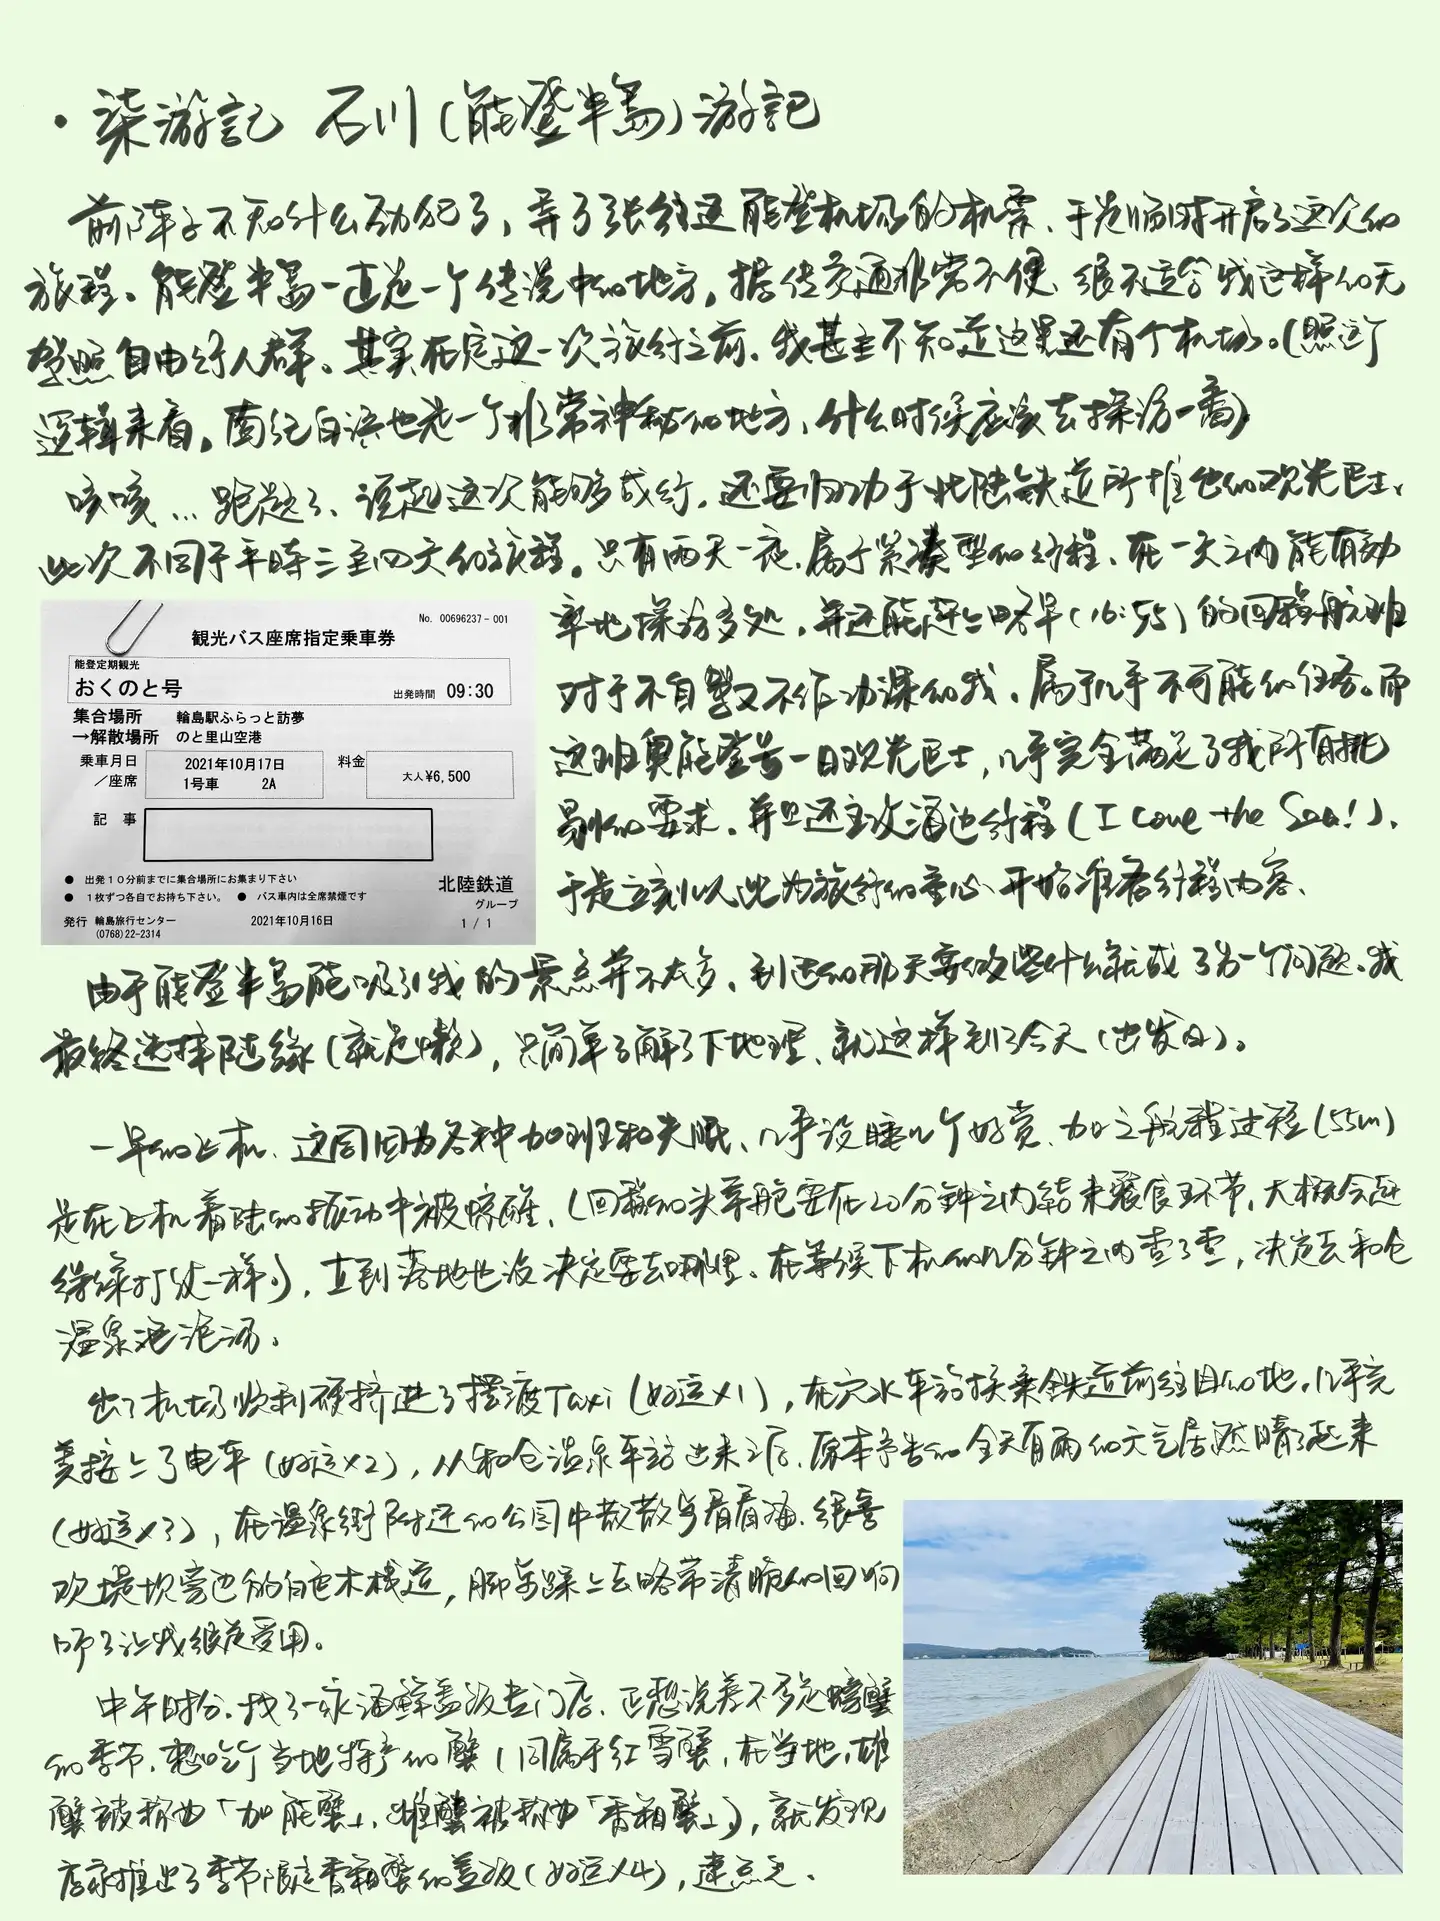 ・柒游記 石川(能登半島)游記
前阵子不知什么劲犯了,弄了张往返能登机场的机票、于是临时开启了这次的
旅程。能登半島一直是一个传说中的地方,据传交通非常不便、很不适合我这样的无
驾照自由行人群。其实在定这一次旅行之前,我甚至不知道这里还有个机场。(照这个
逻辑来看,南纪白浜也是一个非常神秘的地方,什么时候应该去探访一番)
咳咳…跑题了、说起这次能够成行,还要归功于北陸鉄道所推出的观光巴士、
此次不同于平時三至四天的旅程。只有两天一夜、属于紧凑型的行程、在一天之内能有効
率地探访多处,并还能赶上略早(16:55)的回程航班
对于不自驾又不作功课的我、属于几乎不可能的任务。而
这班奥能登号一日观光巴士,几乎完全满足了我所有挑
剔的要求。并且还主攻海边行程(I Love the Sea!)、
于是立刻以此为旅行的重心、开始准备行程内容、
No. 00696237-001
観光バス座席指定乗車券
能登定期観光
おくのと号 出発時間 09:30
集合場所 輪島駅ふらっと訪夢
→解散場所 のと里山空港
乗車月日 2021年10月17日 料金 大人¥6,500
/座席 1号車 2A
記事
● 出発10分前までに集合場所にお集まり下さい
● 1枚ずつ各自でお持ち下さい。 ● バス車内は全席禁煙です
北陸鉄道
グループ
発行 輪島旅行センター 2021年10月16日 1/1
(0768)22-2314
由于能登半島能吸引我的景点并不太多、到达的那天要做些什么就成了另一个问题。我
最终选择随緣(就是懒),只简单了解了下地理、就这样到了今天(出发日)。
一早的飞机、这周因为各种加班和失眠、几乎没睡几个好觉、加之航程过短(55m)
是在飞机着陆的振动中被惊醒、(回程的头等舱要在20分钟之内结束餐食环节,大概会
打仗一样。),直到落地也没决定要去哪里。在等候下机的几分钟之内查了查,决定去和仓
温泉泡泡汤。
出了机场顺利硬挤进了摆渡Taxi(好运×1),在穴水车站换乘鉄道前往目的地。几乎完
美接上了电车(好运×2),从和仓温泉车站出来之后、原本予告的全天有雨的天气居然晴了起来
(好运×3),在温泉街附近的公园中散散步看看海、很喜
欢堤坝旁边的白色木栈道,脚步踩上去略带清脆的回响
声让我很是受用。
中午时分、找了一家海鮮盖饭专门店、正想说差不多是螃蟹
的季节、想吃个当地特产的蟹(同属于红雪蟹,在当地,雄
蟹被称由「加能蟹」、雌蟹被称由「香箱蟹」),就发现
店家推出了季节限定香箱蟹的盖饭(好运×4),速点之、